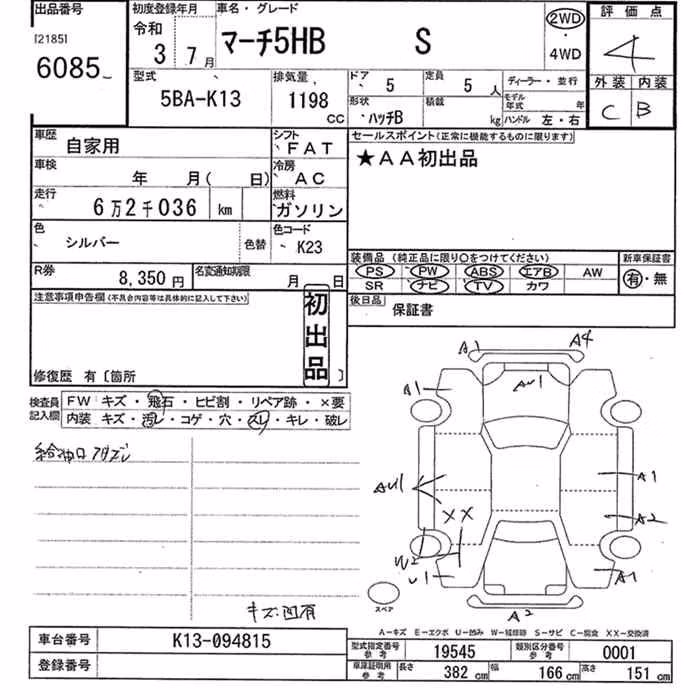 出品番号 初度登録年月 車名・グレード 評価点
[2185] 令和 2WD
6085 3 7月 マーチ5HB S ・ 4
4WD
型式 排気量 ドア 5 定員 5人 ディーラー・並行 外装 内装
5BA-K13 1198 CC 形状 ハッチB 積載 kg モデル年式 年 C B
ハンドル 左・右
車歴 自家用 シフト FAT セールスポイント(正常に機能するものに限ります)
車検 年 月( 日) 冷房 AC ★AA初出品
走行 6万2千036 km 燃料 ガソリン
色 シルバー 色替 色コード K23
装備品(純正品に限り○をつけてください) 新車保証書
R券 8,350円 名変通知期限 月 日 PS PW ABS エアB AW 有・無
SR ナビ TV カワ
注意事項申告欄(不具合内容等は具体的に記入して下さい) 初出品 後日品 保証書
修復歴 有〔箇所 〕
検査員記入欄 FW キズ・飛石・ヒビ割・リペア跡・×要
内装 キズ・汚レ・コゲ・穴・スリ・キレ・破レ
A1 A4
A1 AU1
給油口アタズレ
AU1 A1
XX A2
W2
U1 A1
スペア
キズ凹有 A2
A-キズ E-エクボ U-凹み W-補修跡 S-サビ C-腐食 XX-交換済
車台番号 K13-094815 型式指定番号参考 19545 類別区分番号参考 0001
登録番号 車庫証明用参考 長さ 382cm 幅 166cm 高さ 151cm